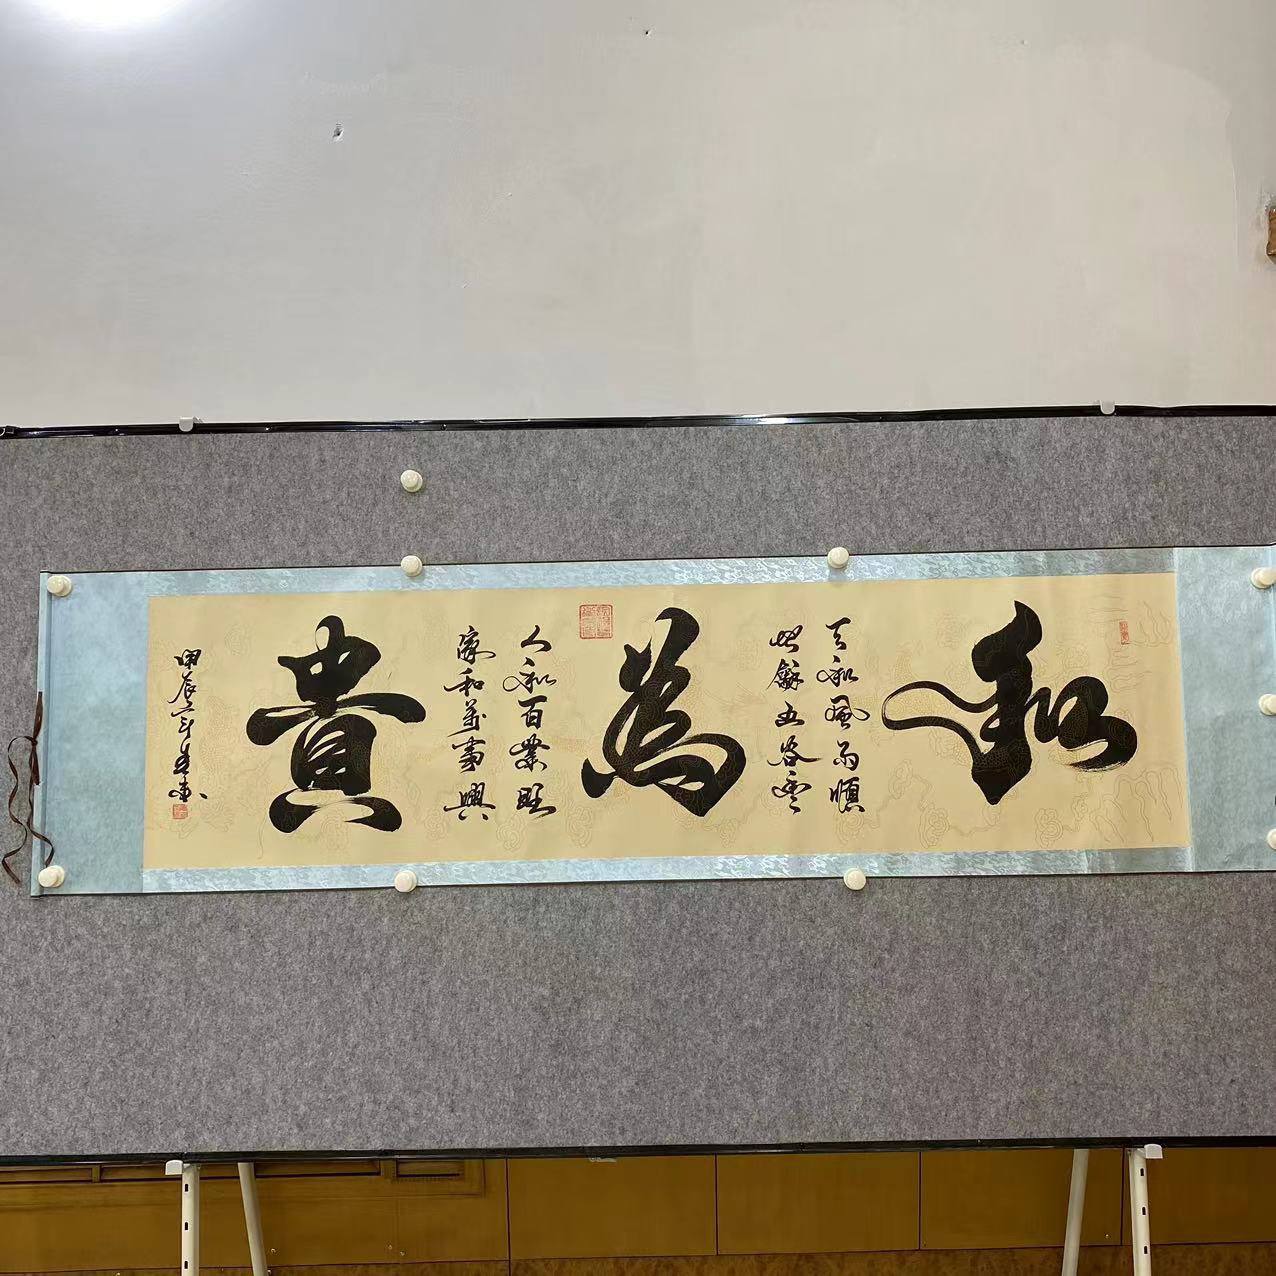 和
天和風雨順
地龢五谷豐
為
人和百業旺
家和萬事興
貴
甲辰年